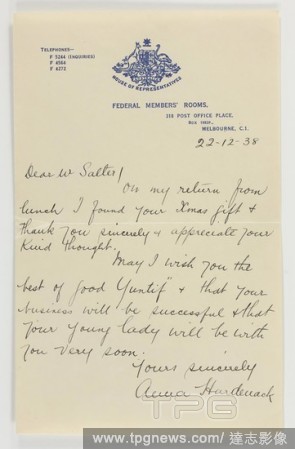 TELEPHONES—
F 5244 (ENQUIRIES)
F 4564
F 4272
HOUSE OF REPRESENTATIVES
FEDERAL MEMBERS' ROOMS.
318 POST OFFICE PLACE,
MELBOURNE, C.1.
22-12-38
Dear Mr Salter/
On my return from
lunch I found your Xmas gift &
thank you sincerely & appreciate your
kind thought.
May I wish you the
best of good Yuntif & that your
business will be successful & that
your young lady will be with
you very soon.
Yours sincerely
Anna
TPG
www.tpgnews.com/達志影像